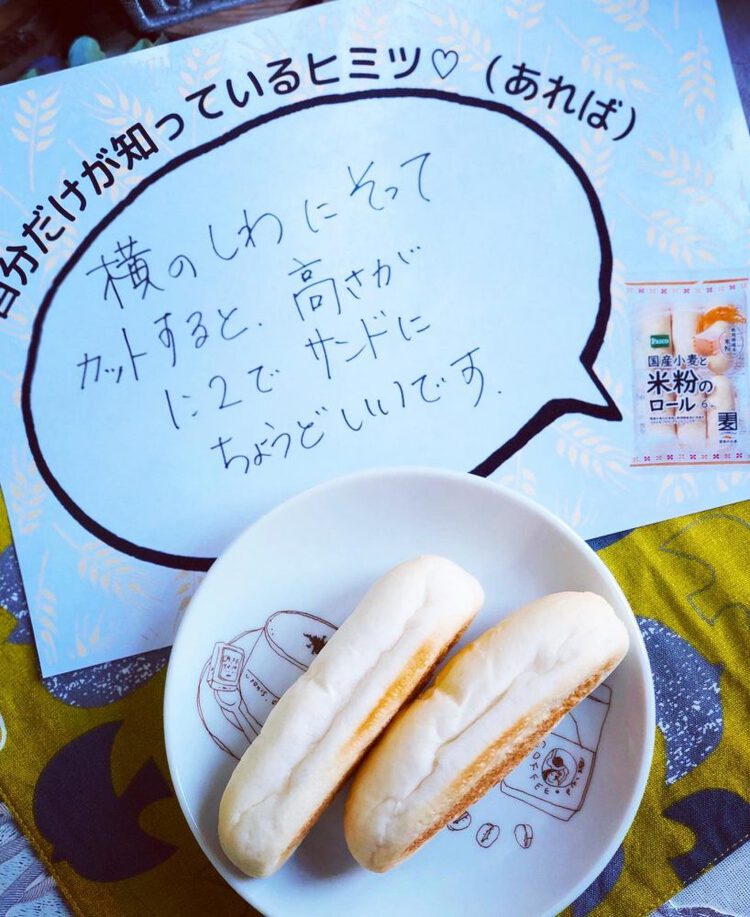 自分だけが知っているヒミツ♡（あれば）
横のしわにそって
カットすると、高さが
に2でサンドに
ちょうどいいです.
Pasco
国産小麦と
米粉の
ロール
6
麦
COFFEE